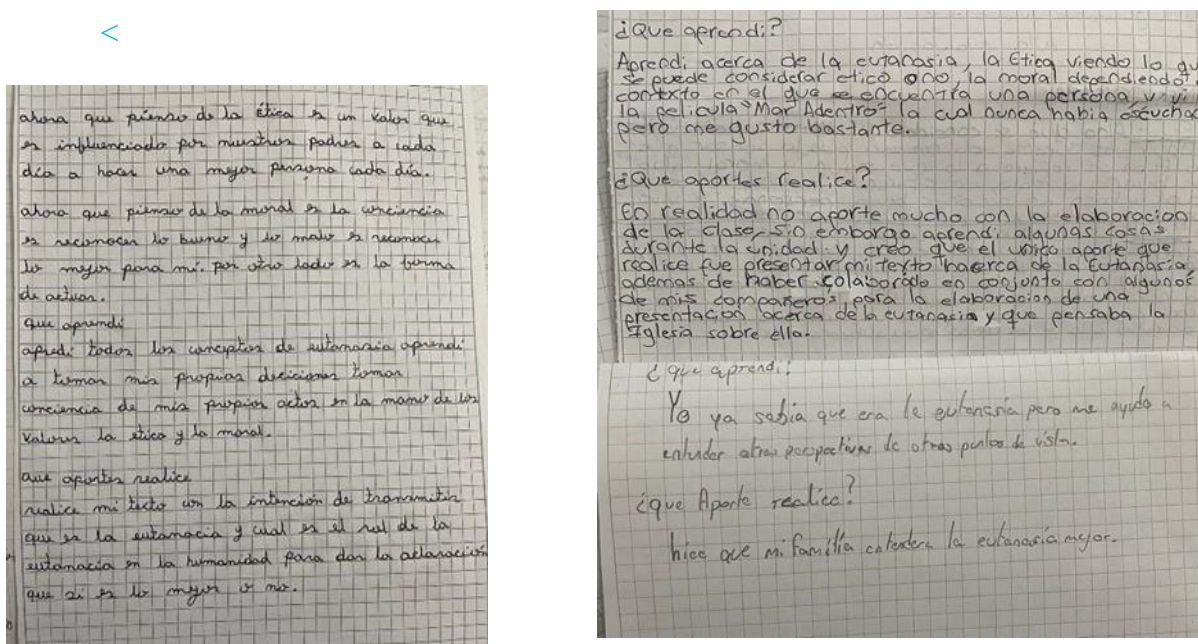 <
ahora que pienso de la ética es un valor que
es influenciado por nuestros padres a cada
día a hacer una mejor persona cada día.
ahora que pienso de la moral es la conciencia
es reconocer lo bueno y lo malo es reconocer
lo mejor para mi. por otro lado es la forma
de actuar.
que aprendi
apredi todos los conceptos de eutanasia aprendi
a tomar mis propias deciciones tomar
conciencia de mis propios actos en la mano de los
valores la ética y la moral.
que aportes realice
realice mi texto con la intención de transmitir
que es la eutanacia y cual es el rol de la
eutanacia en la humanidad para dar la aclaración
que si es lo mejor o no.
¿Que aprendi?
Aprendi acerca de la eutanasia, la Etica viendo lo qu
se puede considerar etico o no, la moral dependiendo
contexto en el que se encuentra una persona, y vi
la pelicula "Mar Adentro" la cual nunca habia escuchad
pero me gusto bastante.
¿Que aportes realice?
En realidad no aporte mucho con la elaboracion
de la clase, sin embargo aprendi algunas cosas
durante la unidad y creo que el unico aporte que
realice fue presentar mi texto hacerca de la Eutanasia,
ademas de haber colaborado en conjunto con algunos
de mis compañeros para la elaboracion de una
presentacion acerca de la eutanasia y que pensaba la
Iglesia sobre ella.
¿que aprendi?
Yo ya sabia que era la eutanasia pero me ayudo a
entender otras perspectivas de otros puntos de vista.
¿que Aporte realice?
hice que mi familia entendera la eutanasia mejor.